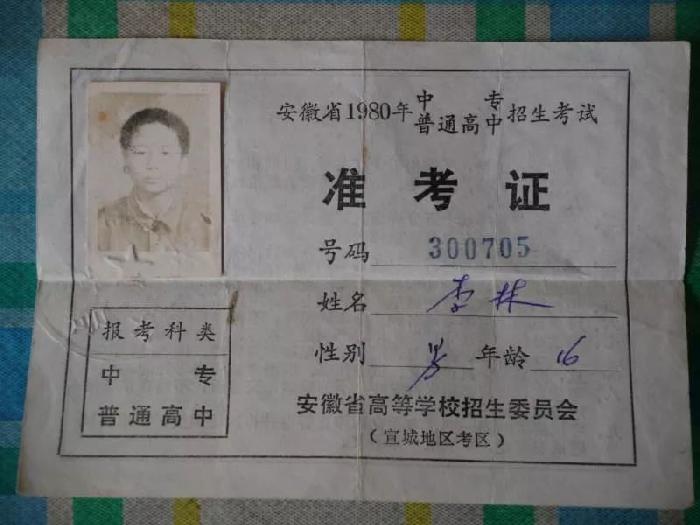 安徽省1980年中专普通高中招生考试
准考证
号码 300705
姓名 李林
性别 男 年龄 16
报考科类
中专
普通高中
安徽省高等学校招生委员会
（宣城地区考区）